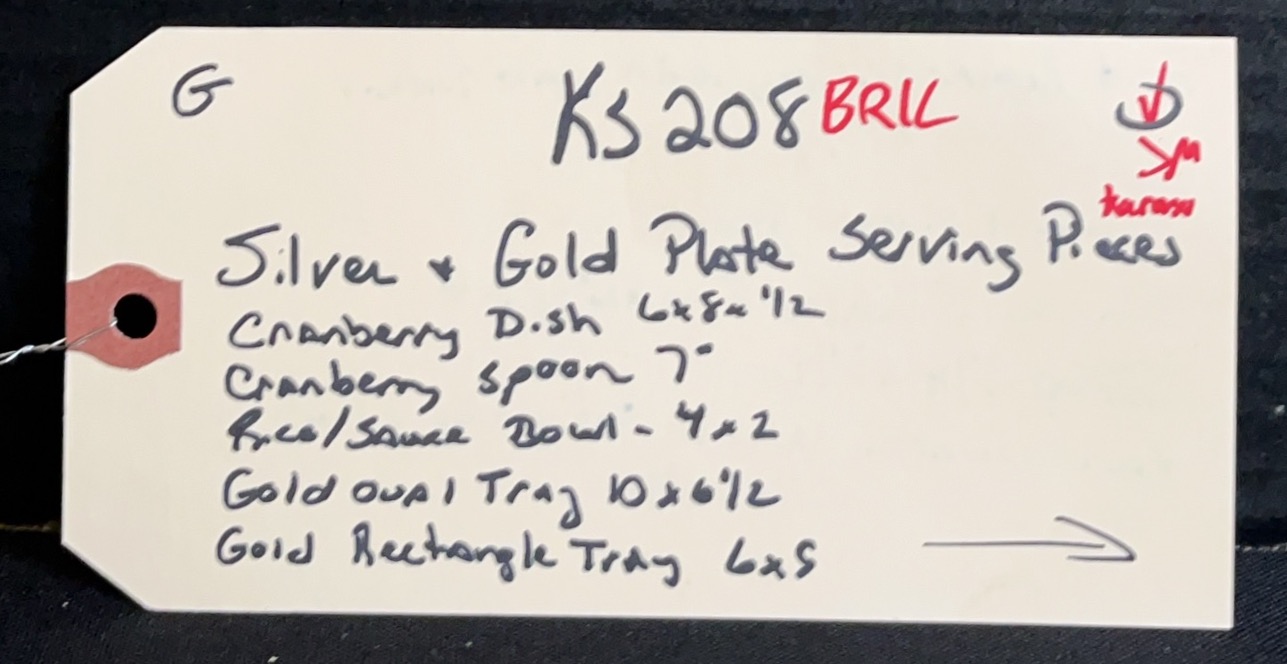 G KS 208 BRIL
Silver + Gold Plate Serving Pieces
Cranberry Dish 6x8x 1/2
Cranberry Spoon 7"
Rice/Sauce Bowl - 4 x 2
Gold oval Tray 10 x 6 1/2
Gold Rectangle Tray 6x5